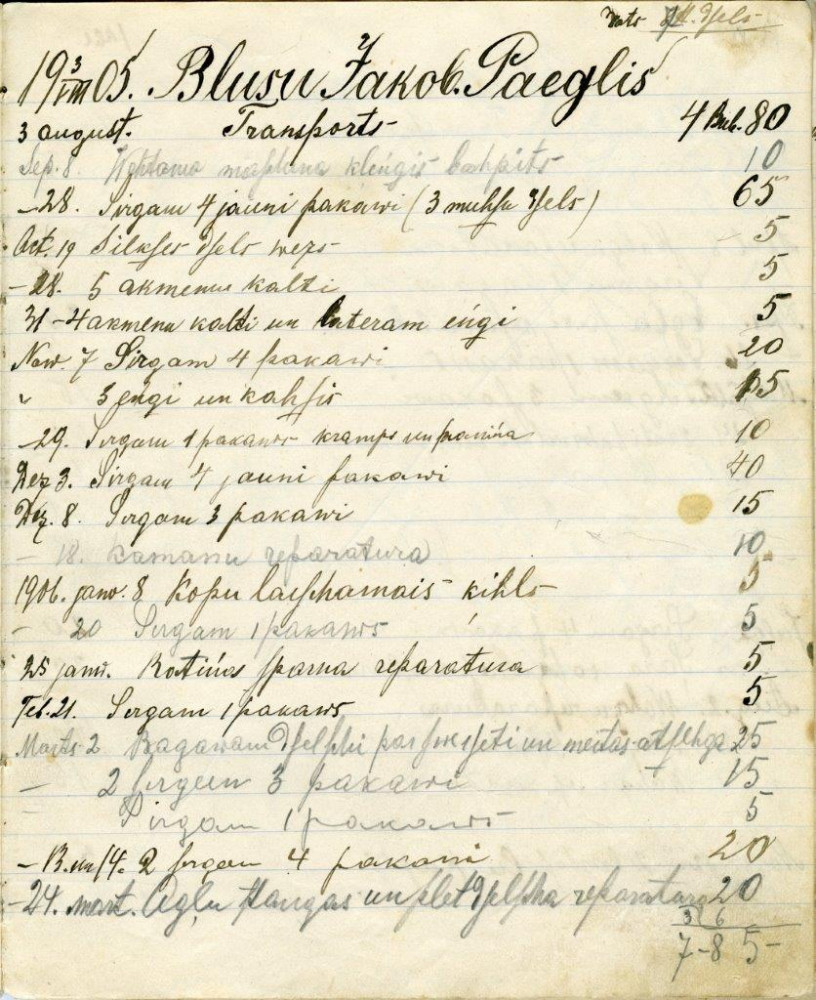 19 3/VIII 05. Blusu Jakob. Paeglis
3 august. Transports 4 Rub. 80
Sep. 8. maschina klengis 10
-28. Sirgam 4 jauni pakawi (3 muhsu dsels) 65
Oct. 19 Silkses dsels wezs 5
-28. 5 akmenu kalti 5
31 - 4 akmenu kalti un luteram engi 5
Now. 7 Sirgam 4 pakawi 20
" 3 engi un kahsis 15
-29. Sirgam 1 pakaws kramps un 10
Dez 3. Sirgam 4 jauni pakawi 40
Dez. 8. Sirgam 3 pakawi 15
- 18. Kamanu reparatura 10
1906. janw. 8 Kopu laischamais kihls 5
- 20 Sirgam 1 pakaws 5
25 janw. Ratiņas sparna reparatura 5
Feb. 21. Sirgam 1 pakaws 5
Marts 2 Ragawam dselschi un meitas atslehga 25
- 2 sirgeem 3 pakawi 15
- Sirgam 1 pakaws 5
- 13. un 14. 2 sirgam 4 pakawi 20
-24. mart. Aglu stangas un plet dselscha reparatura 20
3 6
7-85-